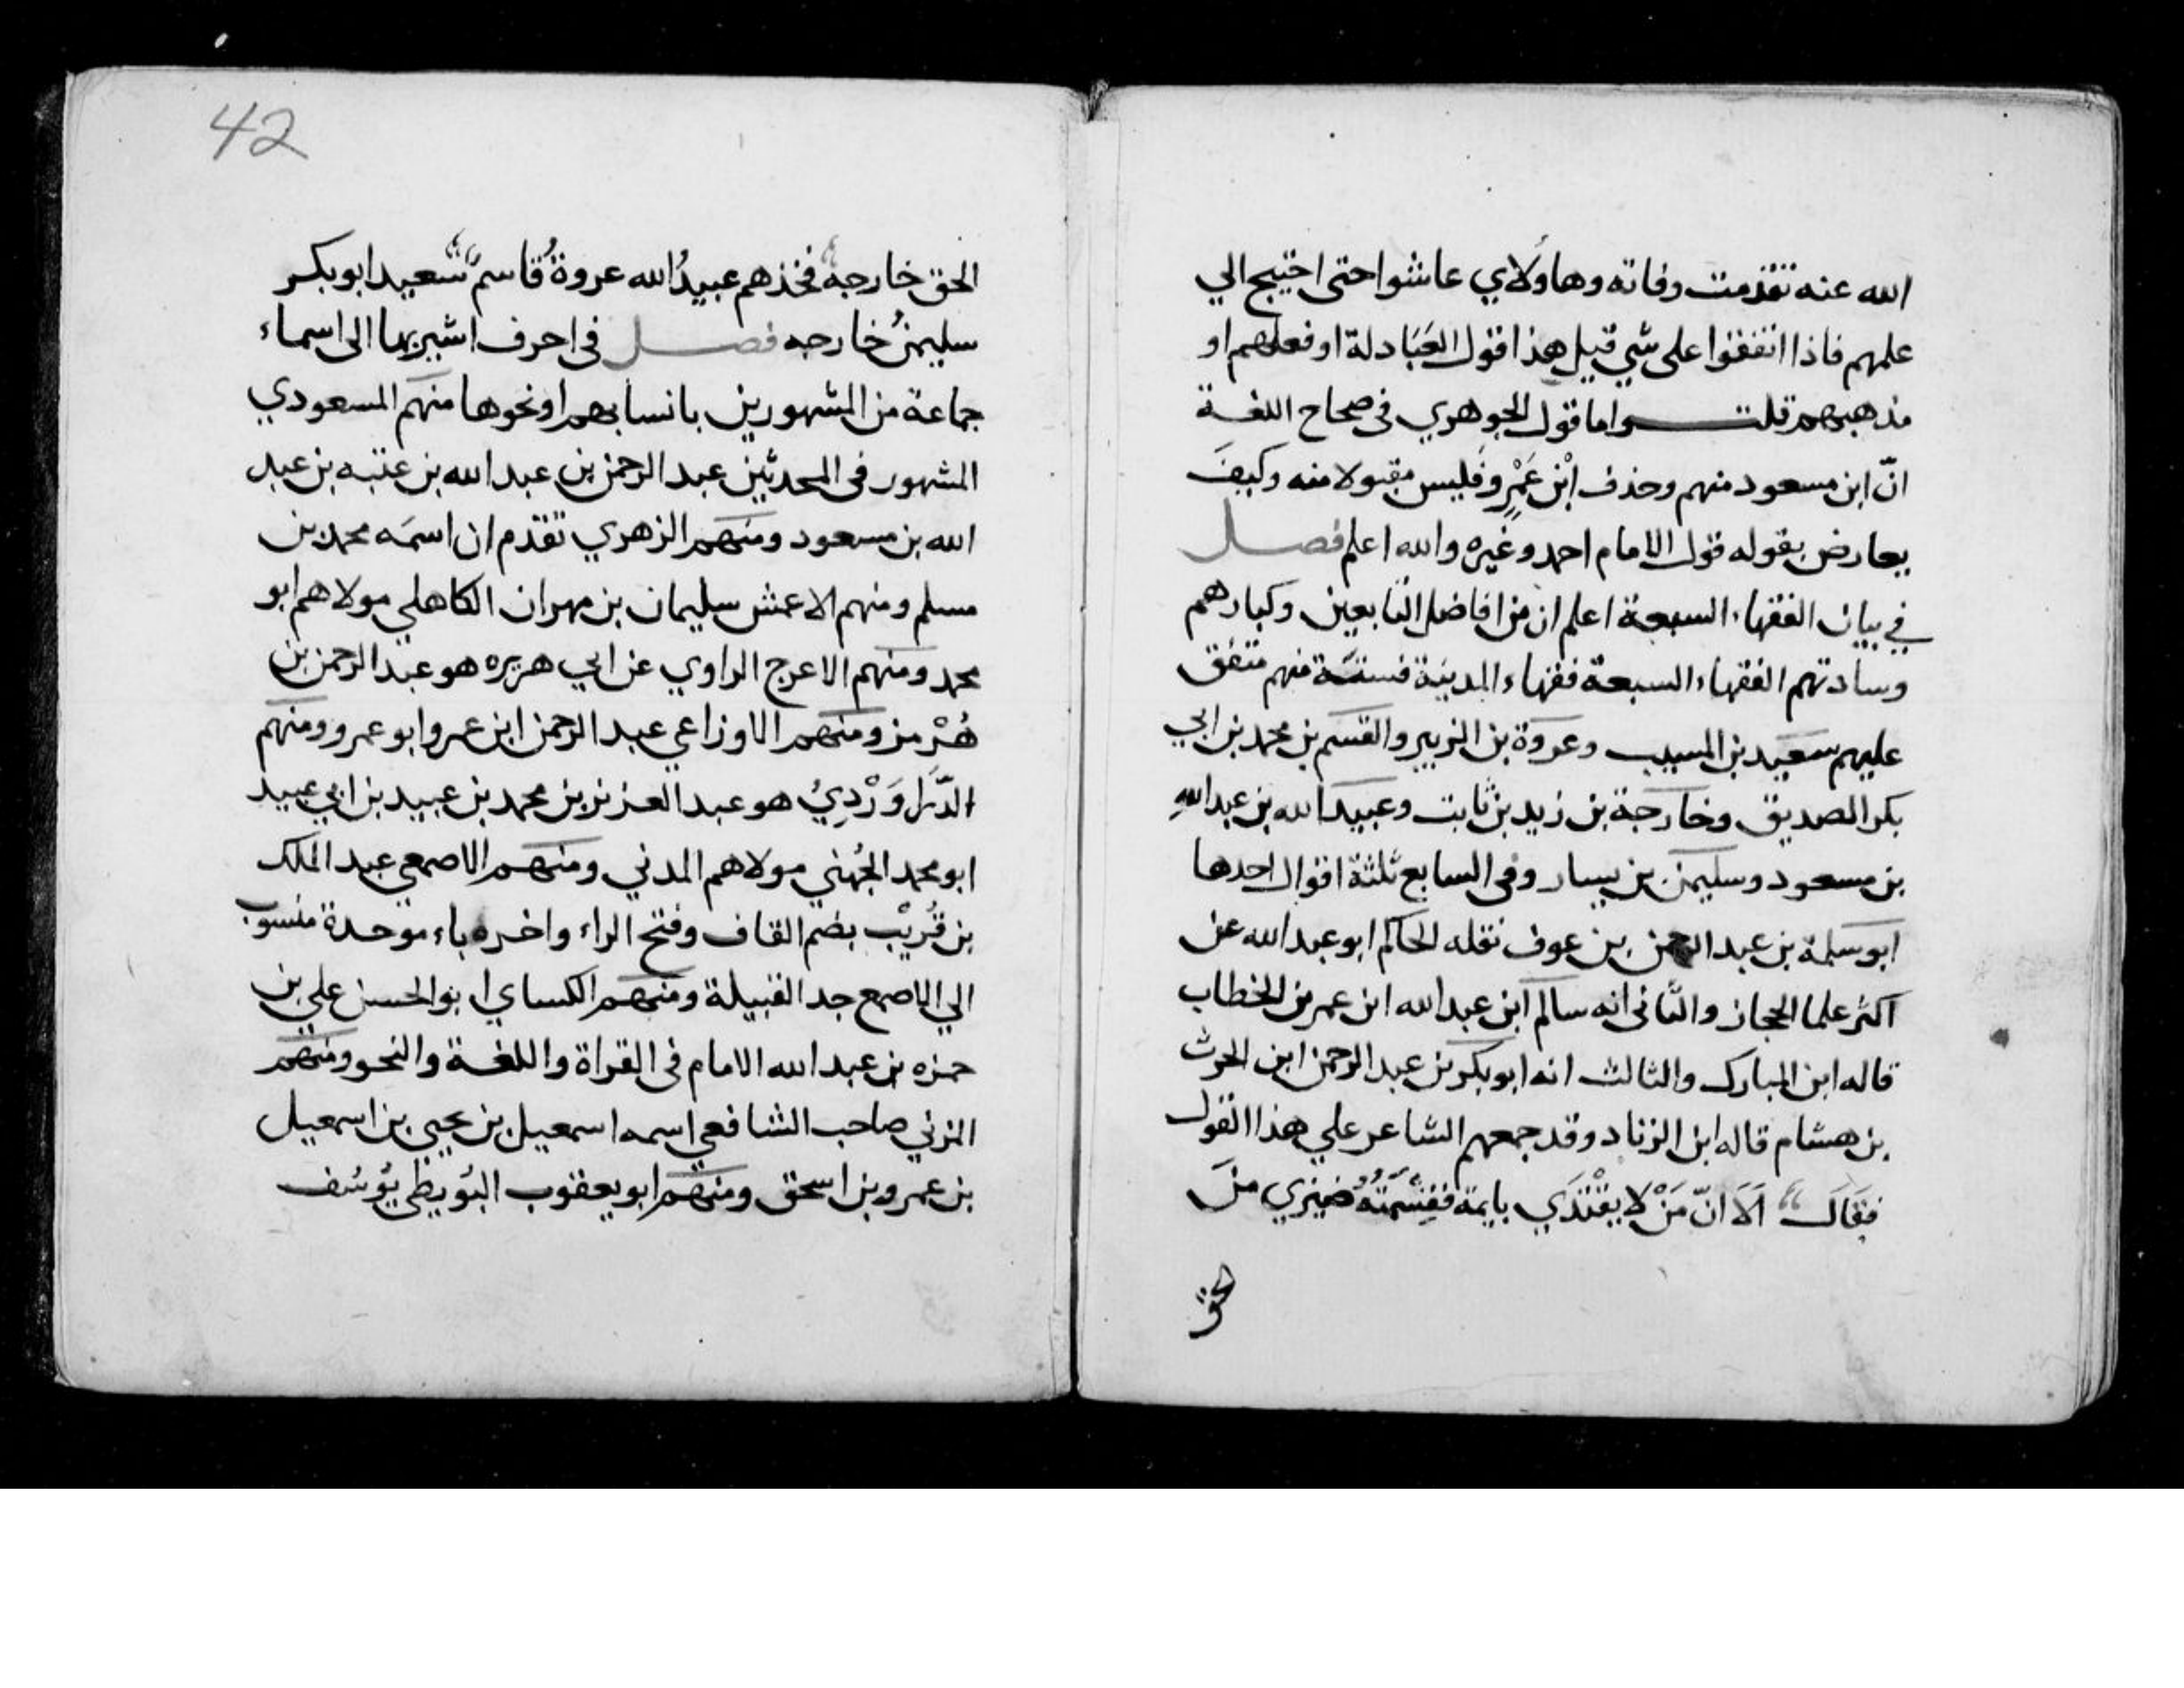 الله عنه تقدمت وفاته وهاولاي عاشوا حتى احتيج الي
علمهم فاذا اتفقوا على شي قيل هذا قول العَبَادلة او فعلهم او
مذهبهم قلت واما قول الجوهري في صحاح اللغة
انّ ابن مسعود منهم وحذف ابْن عَمْرٍو فليس مقبولا منه وكيفَ
يعارض بقوله قول الامام احمد وغيره والله اعلم فصل
في بيان الفقهاء السبعة اعلم ان من افاضل التابعين وكبارهم
وسادتهم الفقهاء السبعة فقهاء المدينة فستة منهم متفق
عليهم سعيد بن المسيب وعروة بن الزبير والقسم بن محمد بن ابي
بكر الصديق وخارجة بن زيد بن ثابت وعبيد الله بن عبد الله
بن مسعود وسليمن بن يسار وفي السابع ثلثة اقوال احدها
ابو سلمة بن عبد الرحمن بن عوف نقله الحاكم ابو عبد الله عن
اكثر علما الحجاز والثاني انه سالم ابن عبد الله ابن عمر بن الخطاب
قاله ابن المبارك والثالث انه ابو بكر بن عبد الرحمن ابن الحرث
بن هشام قاله ابن الزناد وقد جمعهم الشاعر علي هذا القول
فقَالَ اَلَا انّ مَنْ لا يقْتَدَي بايمة فقِسْمَتُهُ ضيزي منَ
الحق
42
الحق خارجة فخذهم عبيدُ الله عروةُ قاسم سعيد ابو بكر
سليمنُ خارجه فصل في احرف اشير بها الى اسماء
جماعة من المشهورين بانسابهم او نحوها منهم المسعودي
المشهور في المحدثين عبد الرحمن بن عبد الله بن عتبه بن عبد
الله بن مسعود ومنهم الزهري تقدم ان اسمَه محمد بن
مسلم ومنهم الاعمش سليمان بن مهران الكاهلي مولاهم ابو
محمد ومنهم الاعرج الراوي عن ابي هريره هو عبد الرحمن بن
هُرْمز ومنهم الاوزاعي عبد الرحمن ابن عمرو ابو عمرو ومنهم
الدَّرَاوَرْدِيُ هو عبد العزيز بن محمد بن عبيد بن ابي عبيد
ابو محمد الجُهني مولاهم المدني ومنهم الاصمعي عبد الملك
بن قُرَيْب بضم القاف وفتح الراء واخره باء موحدة منسوب
الي الاصمع جد القبيلة ومنهم الكساي ابو الحسن علي بن
حمزه بن عبد الله الامام في القراة واللغة والنحو ومنهم
المزني صاحب الشافعي اسمه اسمعيل بن يحيي بن اسمعيل
بن عمرو بن اسحق ومنهم ابو يعقوب البُويطي يُوسُف